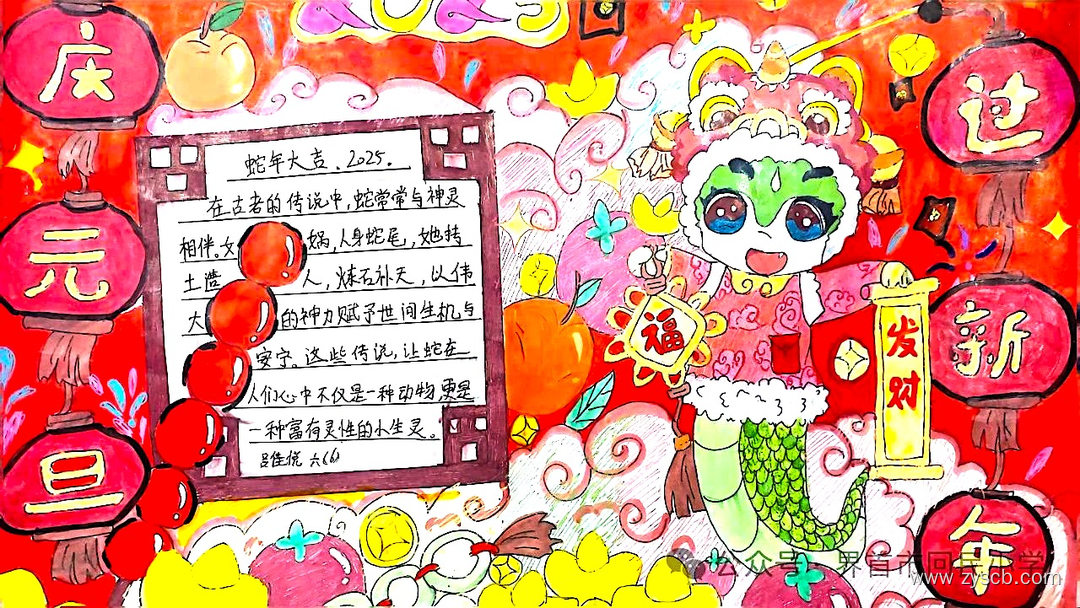 庆
元
旦
蛇年大吉、2025.
在古老的传说中,蛇常常与神灵
相伴。女娲,人身蛇尾,她抟
土造人,炼石补天,以伟
大的神力赋予世间生机与
安宁。这些传说,让蛇在
人们心中不仅是一种动物,更是
一种富有灵性的小生灵。
六(6)
福
发
财
过
新
年
公众号·界首市回民小学
www.zyscb.com